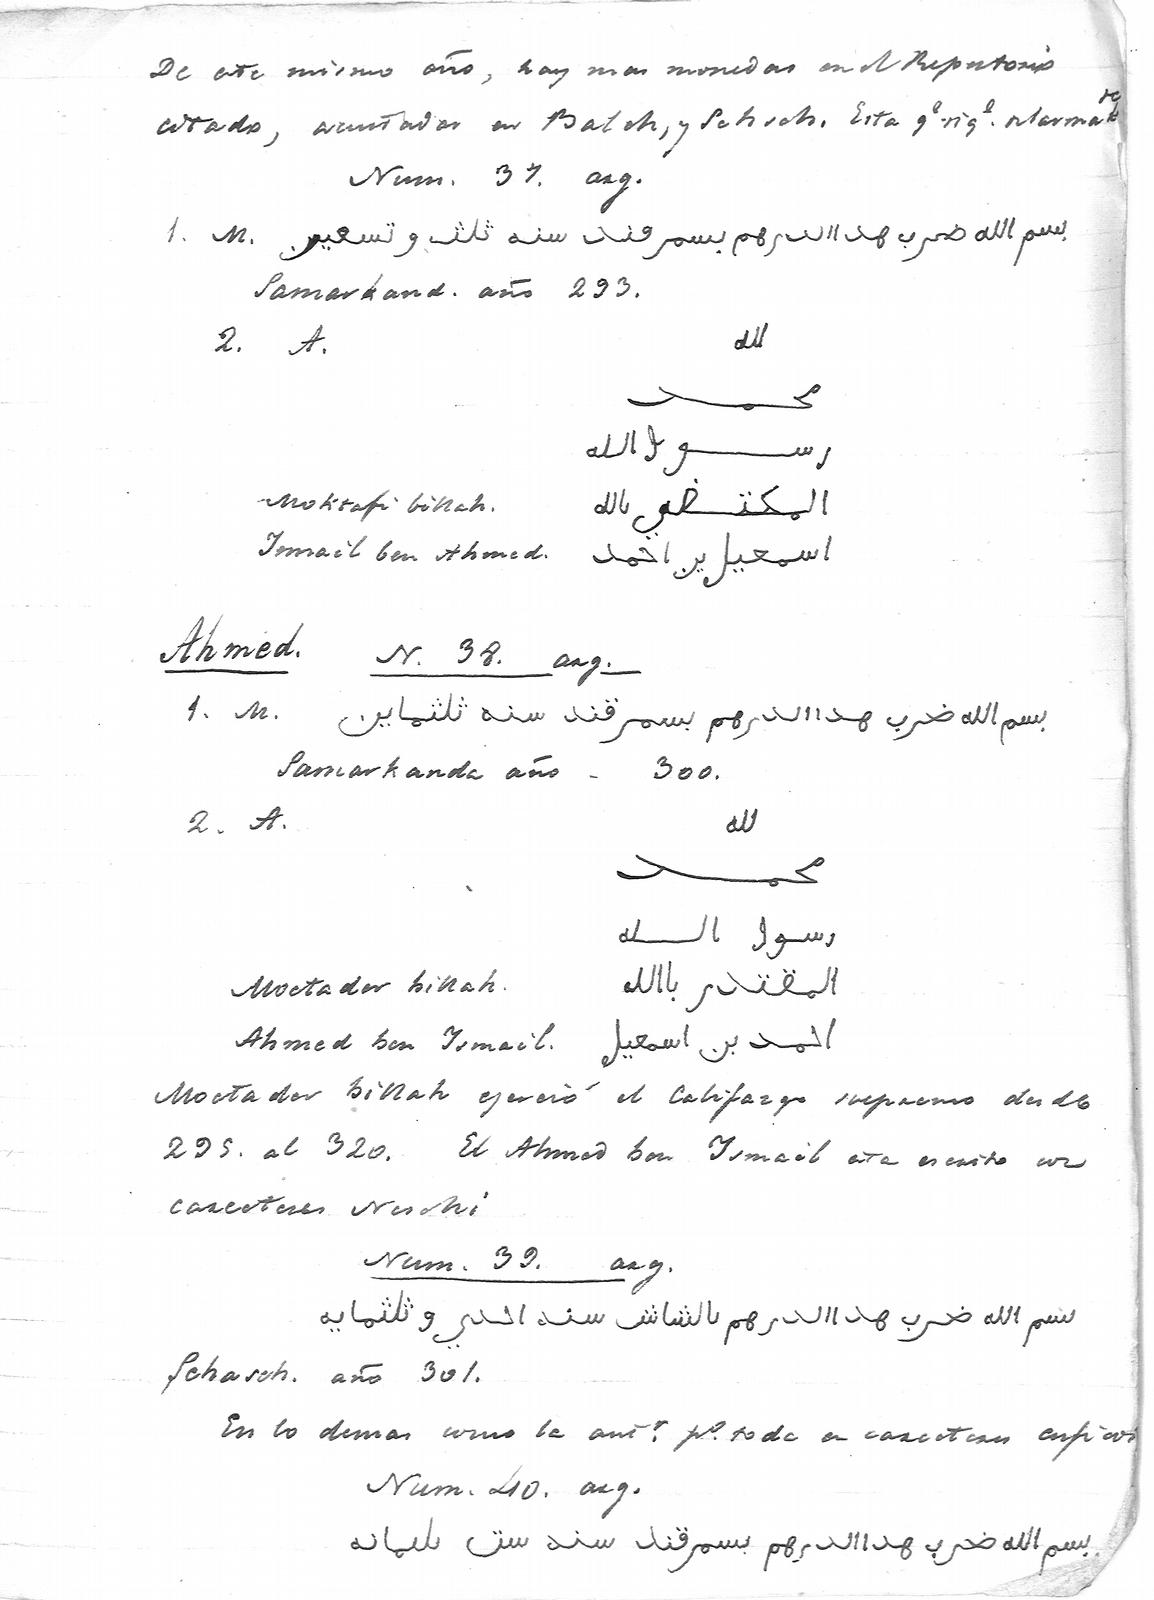 De este mismo año, hay mas monedas en el Repertorio
citado, acuñadas en Balch, y Schsch. Esta q.e sig.e
Num. 37. arg.
1. M. بسم الله ضرب هدا الدرهم بسمرقند سنه ثلث و تسعين
Samarkand. año 293.
2. A. لله
محمد
رسول الله
Moktafi billah. المكتفي بالله
Ismail ben Ahmed. اسمعيل بن احمد
Ahmed. N. 38. arg.
1. M. بسم الله ضرب هدا الدرهم بسمرقند سنه ثلثماين
Samarkanda año - 300.
2. A. لله
محمد
رسول الله
Moctader billah. المقتدر باالله
Ahmed ben Ismail. احمد بن اسمعيل
Moctader billah ejerció el Califazgo supremo desde
295. al 320. El Ahmed ben Ismail esta escrito con
caracteres Neschi
Num. 39. arg.
بسم الله ضرب هدا الدرهم بالشاش سنه احدي و ثلثمايه
Schasch. año 301.
En lo demas como la ant.r p.o toda en caracteres cuficos
Num. 40. arg.
بسم الله ضرب هدا الدرهم بسمرقند سنه ست ثلثمانه